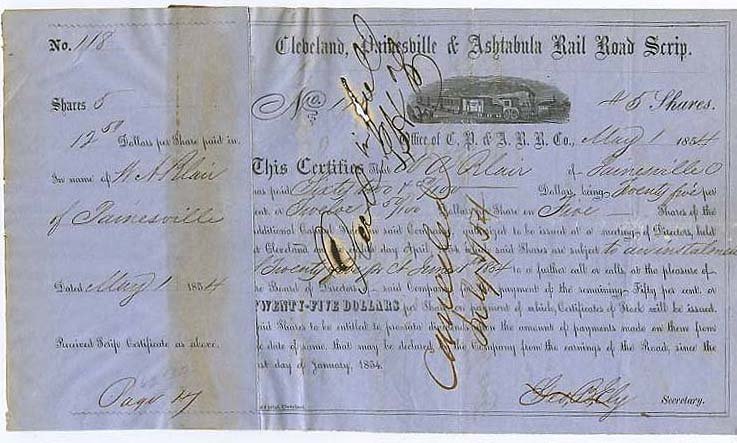 No. 118
Shares 5
12 50 Dollars per Share paid in.
In name of W A Blair
of Painesville
Dated May 1 1854
Received Scrip Certificate as above.
Page 47
Cleveland, Painesville & Ashtabula Rail Road Scrip.
No. 5 Shares.
Office of C. P. & A. R. R. Co., May 1 1854
This Certifies That W A Blair of Painesville O
has paid Sixty two & 50/100 Dollars, being Twenty five per
cent. or Twelve 50/100 Dollars Share on Five Shares of the
additional Capital said Company, authorized to be issued at a meeting of Directors, held
at Cleveland April 1854 which said Shares are subject to an instalment
Twenty June 1 1854 to a further call or calls at the pleasure of
the Board of Directors said Company for payment of the remaining Fifty per cent. or
TWENTY-FIVE DOLLARS per Share, on payment of which, Certificates of Stock will be issued.
said Shares to be entitled to pro-rata dividends upon the amount of payments made on them from
the date of same, that may be declared by the Company from the earnings of the Road, since the
1st day of January, 1854.
Geo. B. Ely Secretary.
in full
Cancelled
1854